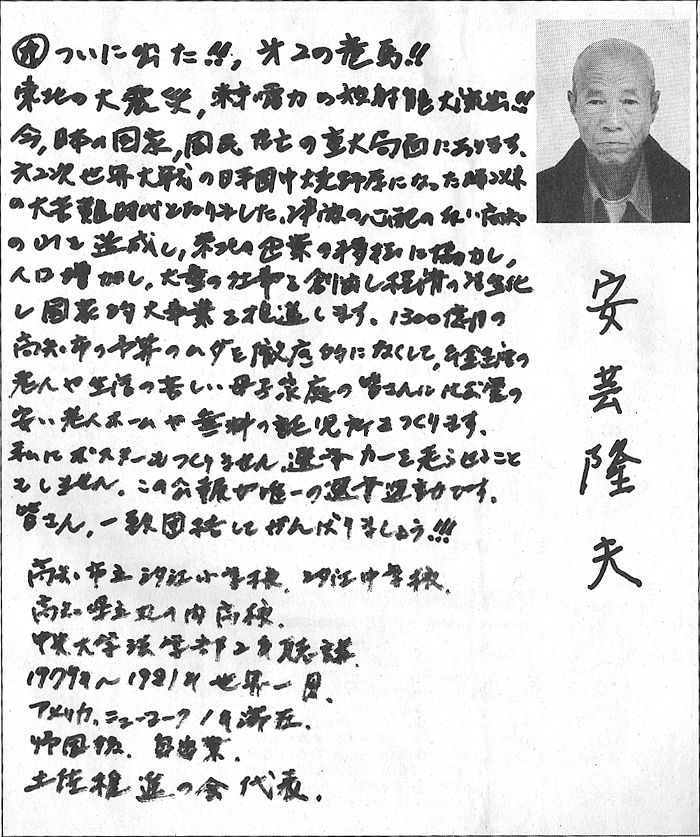 ついに出た!!, 才2の竜馬!!
東北の大震災, 東京電力の放射能大流出!!
今, 日本の国家, 国民存亡の重大局面にあります.
才2次世界大戦の日本国中焼野原になった時以来
の大苦難時代となりました. 津波の心配のない高知
の山を造成し, 東北の企業の移転に協力し,
人口増加し, 大量の仕事を創出し経済の活性化
し国家的大事業を推進します. 1300億円の
高知市の予算のムダを徹底的になくして, 年金生活の
老人や生活の苦しい母子家庭の皆さんには公営の
安い老人ホームや無料の託児所をつくります.
私はポスターもつくりません. 選挙カーを走らせること
もしません. この公報が唯一の選挙運動です.
皆さん, 一致団結してがんばりましょう!!!
高知市立潮江小学校. 潮江中学校.
高知県立丸の内高校.
中央大学法学部2年聴講.
1979年〜1981年世界一周.
アメリカ. ニューヨーク1年滞在.
帰国後. 自由業.
土佐維進の会代表.
安芸隆夫